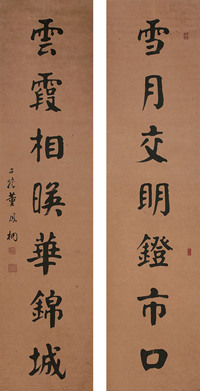 雪月交明鐙市口
雲霞相暎華錦城
董